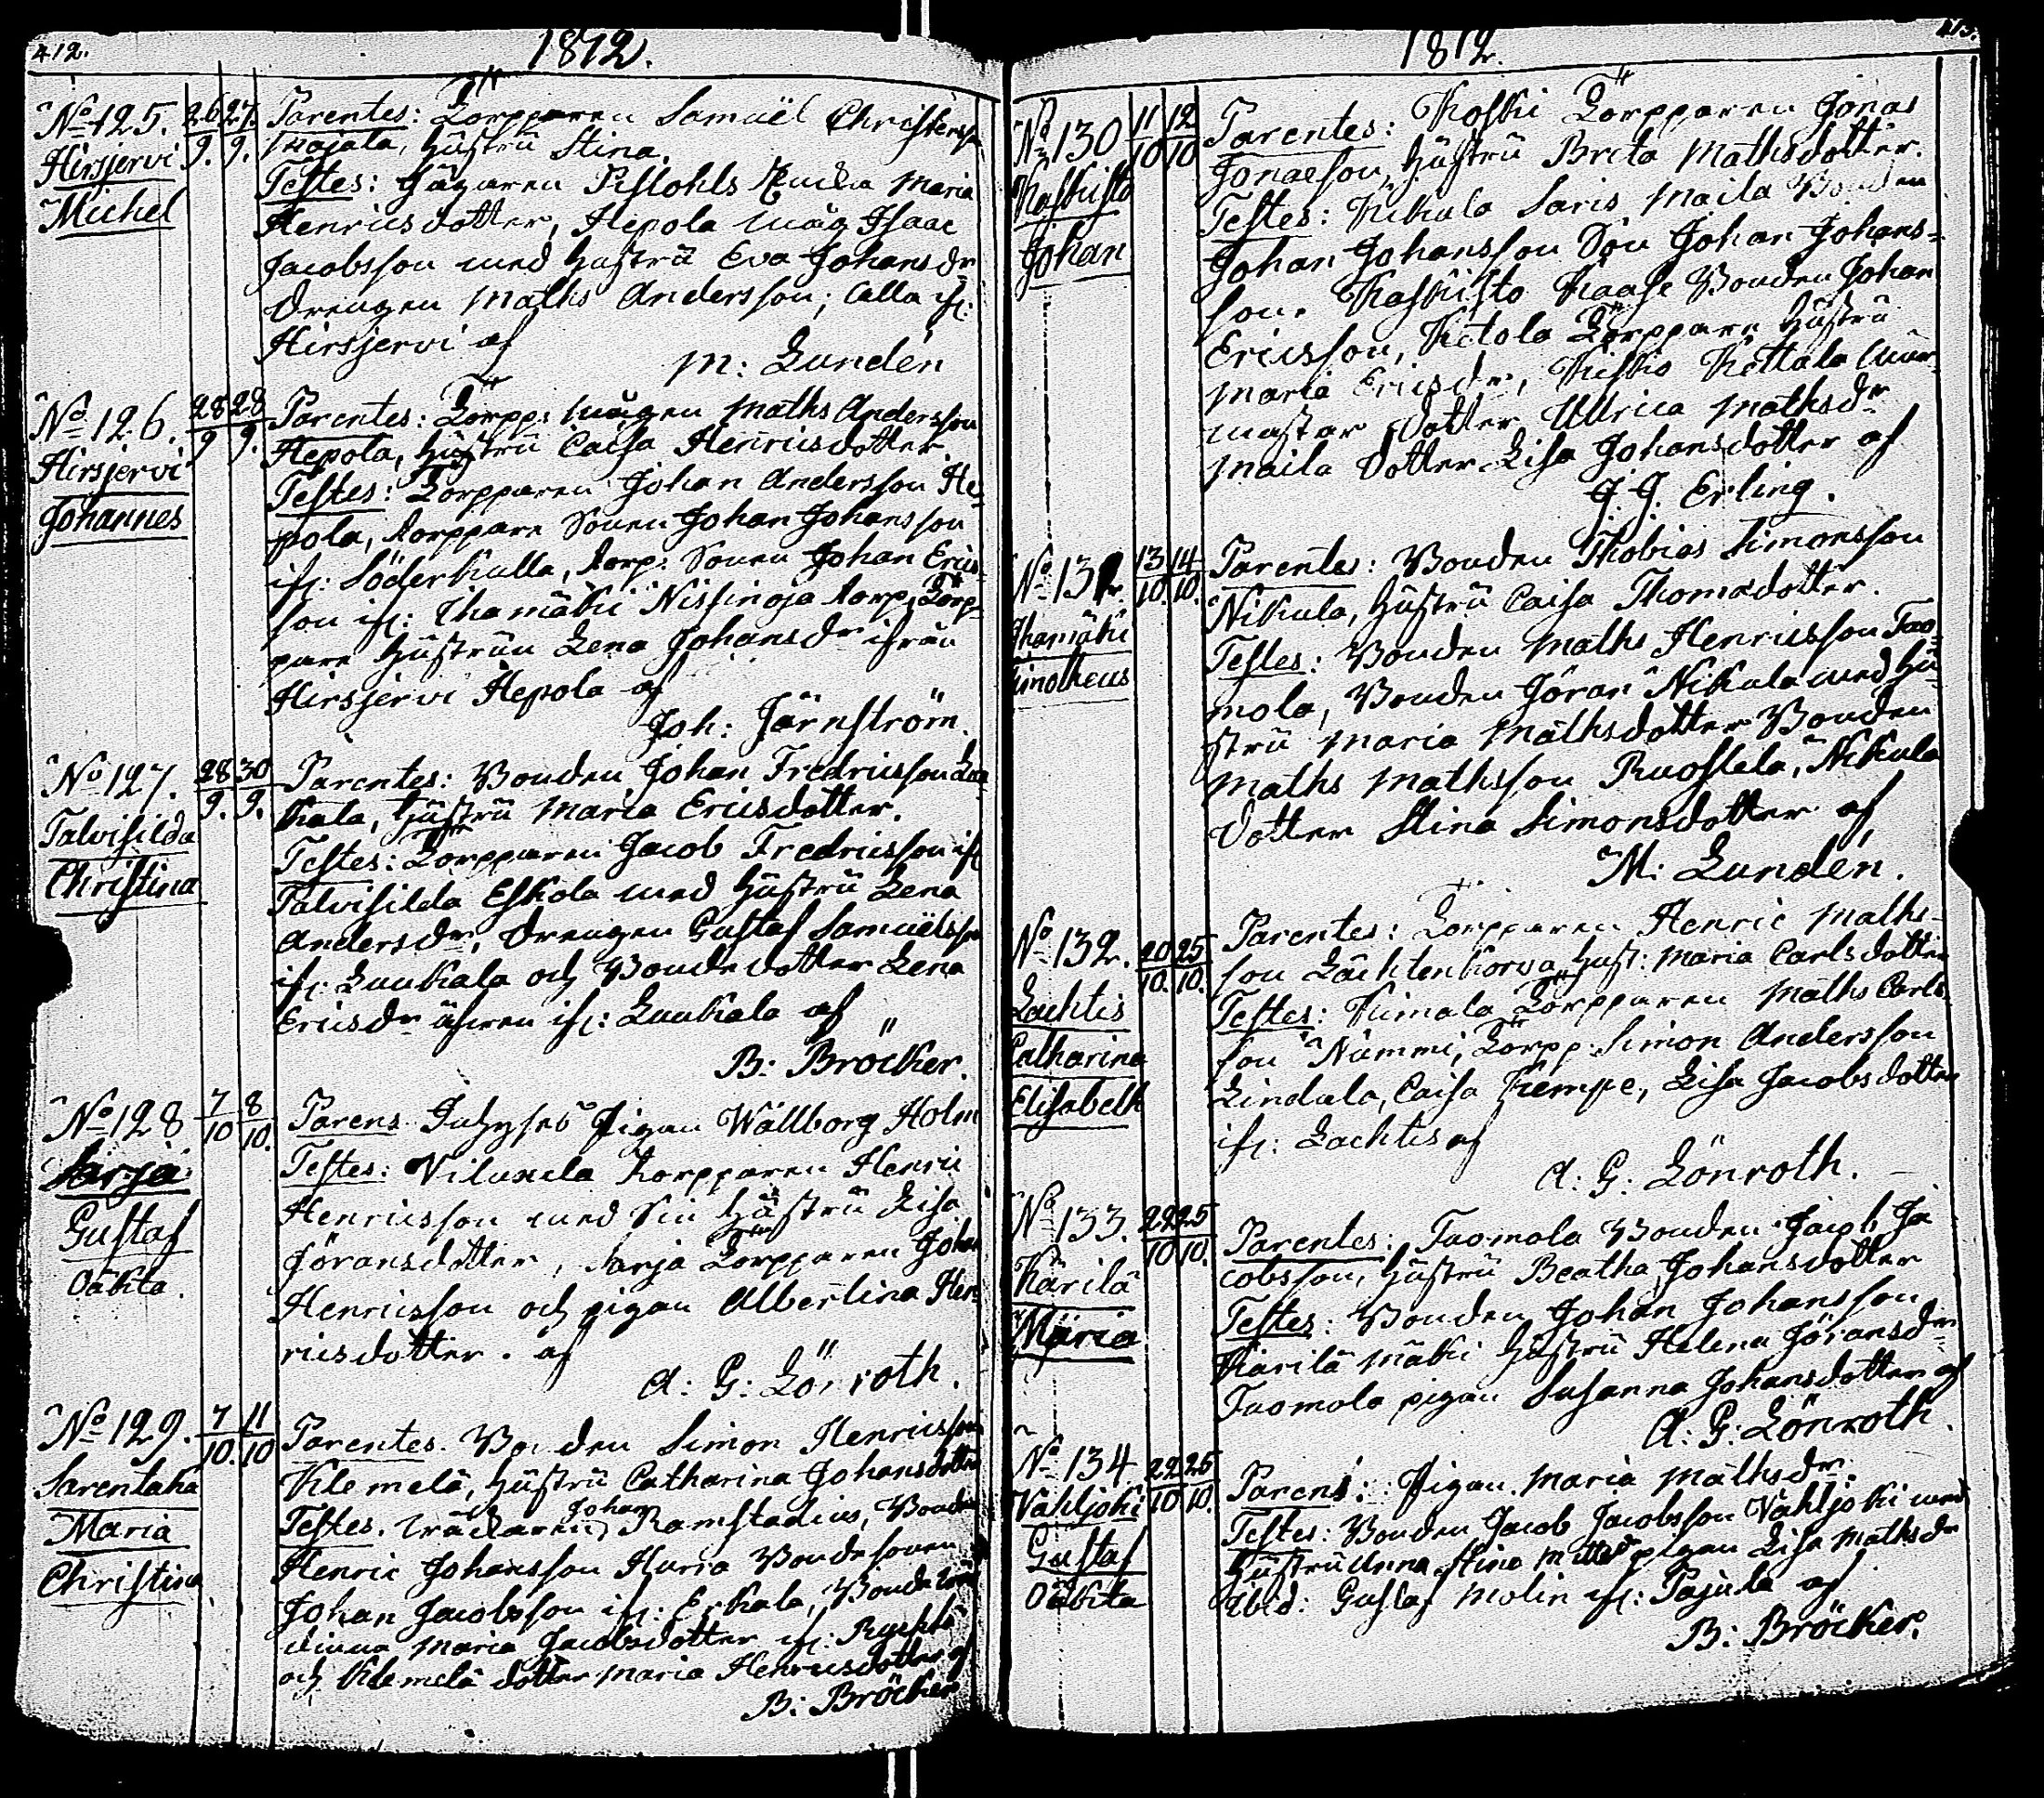 412.
1812.
No 125.
Hirsjervi
Michel
26/9. 27/9.
Parentes: Torpparen Samuël Christersson
Majala, Hustru Stina.
Testes: Jägaren Pistohls Maria
Henricsdotter, Hepola måg Isaac
Jacobsson med Hustru Eva Johansdr
Drengen Maths Andersson; alla ifr:
Hirsjervi af
M: Lunden
No 126.
Hirsjervi
Johannes
28/9 28/9.
Parentes: Torpp: mågen Maths Andersson
Hepola, Hustru Caisa Henricsdotter.
Testes: Torpparen Johan Andersson He-
pola, torppare Sonen Johan Johansson
ifr: Söderkulla, torp: Sonen Johan Erics-
son ifr: Ihamäki Nissinoja torp, Torp-
pare Hustrun Lena Johansdr ifrån
Hirsjervi Hepola af
Joh: Järnström.
No 127.
Talvisilda
Christina
28/9. 30/9.
Parentes: Bonden Johan Fredricsson Luu
kala, Hustru Maria Ericsdotter.
Testes: Torpparen Jacob Fredricsson ifr
Talvisilda Eskola med Hustru Lena
Andersdr, Drengen Gustaf Samuëlsson
ifr: Luukala och Bondedotter Lena
Ericsdr äfven ifr: Luukala af
B: Bröcker.
No 128
Sarja
Gustaf
Oäkta.
7/10 8/10.
Parens Inhyses Pigan Wallborg Holm
Testes: Viluxela torpparen Henric
Henricsson med Sin Hustru Lisa
Jöransdotter, Sarja Torpparen Johan
Henricsson och pigan Albertina Hen-
ricsdotter. af
A: G: Lönroth.
No 129.
Sarentaka
Maria
Christina
7/10. 11/10
Parentes. Bonden Simon Henricsson
Klemelä, Hustru Catharina Johansdotter
Testes. Johan Ramstadius, Bonden
Henric Johansson Huria Bondesonen
Johan Jacobsson ifr: Erkala, Bonde
Maria Jacobsdotter ifr:
och Klemelä dotter Maria Henricsdotter af
B: Bröcker
413.
1812.
No 130
Kaskisto
Johan
11/10 12/10
Parentes: Koski Torpparen Jonas
Jonaeson, Hustru Brita Mathsdotter.
Testes: Kikala Saris Maila Bonden
Johan Johansson Son Johan Johans-
son. Kaskisto Kaase Bonden Johan
Ericsson, Ketola Torppare Hustru
Maria Ericsdr, Kisko Kettala
mastar dotter Ullrica Mathsdr
Maila dotter Lisa Johansdotter af
J. J. Erling.
No 131.
Ihamäki
Timotheus
13/10. 14/10.
Parentes: Bonden Thobias Simonsson
Nikula, Hustru Caisa Thomasdotter.
Testes: Bonden Maths Henricsson Tuo-
mola, Bonden Jöran Nikula med Hu-
stru Maria Mathsdotter Bonden
Maths Mathsson Ruoslela, Nikula
dotter Stina Simonsdotter af
M: Lunden.
No 132.
Lachtis
Catharina
Elisabeth
20/10. 25/10.
Parentes: Torpparen Henric Maths-
son Lächtenkorva Hust: Maria Carlsdotter
Testes: Kimala Torpparen Maths Carls
son Nummi, Torpp: Simon Andersson
Lindula, Caisa Kempe, Lisa Jacobsdotter
ifr: Lachtis af
A: G: Lönroth.
No 133.
Kärilä
Maria
22/10 25/10.
Parentes: Tuomola Bonden Jacob Ja
cobsson, Hustru Beatha Johansdotter
Testes: Bonden Johan Johansson
Karilä mäki Hustru Helena Jöransdr
Tuomola pigan Susanna Johansdotter af
A: G: Lönroth.
No 134
Vahljoki
Gustaf
Oäkta
22/10 25/10.
Parens: Pigan Maria Mathsdr.
Testes: Bonden Jacob Jacobsson Vahljoki med
Hustru Anna Stina pigan Lisa Mathsdr
ibid: Gustaf Molin ifr: Pajula af
B: Bröcker.